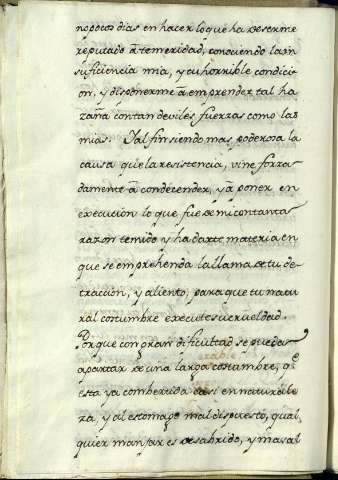 no pocos dias en hacer lo que ha de serme
reputado a temeridad, conoçiendo la in
suficiencia mia, y tu horrible condici
on, y disponerme a emprender tal ha
zaña con tan deviles fuerzas como las
mias. Y al fin siendo mas poderosa la
causa que la resistencia, vine forza
damente a condecender, y a poner en
execucion lo que fue de mi con tanta
razon temido y ha darte materia en
que se emprehenda la llama de tu de
tracion, y aliento, para que tu natu
ral costumbre executes tu crueldad.
Porque con gran dificultad se puede
apartar de una larga costumbre, q
esta ya combertida casi en naturale
za, y al estomago mal dispuesto, qual
quier manjar es desabrido, y mas al